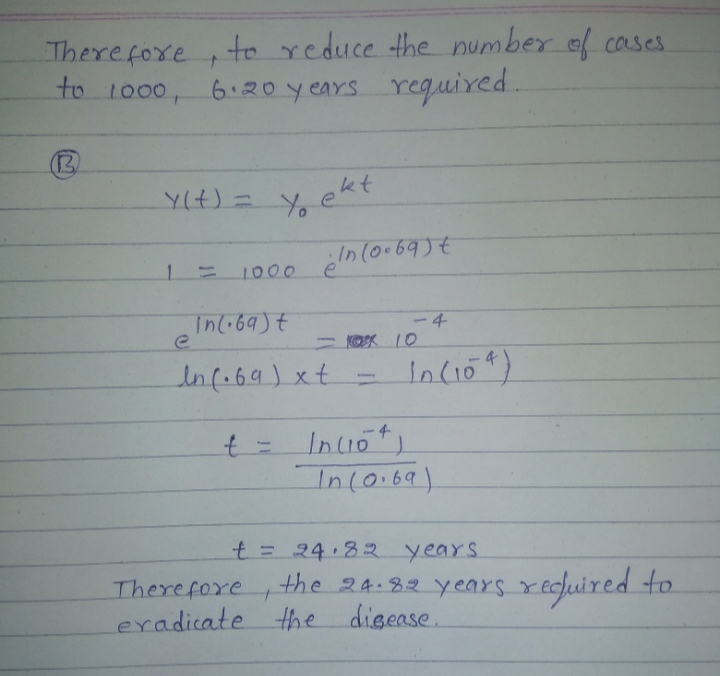 Therefore , to reduce the number of cases
to 1000, 6.20 years required.
B
Y(t) = Y₀ e^kt
1 = 1000 e^ln(0.69)t
e^ln(.69)t = 10^-4
ln(.69) x t = ln(10^-4)
t = ln(10^-4)
ln(0.69)
t = 24.82 years
Therefore , the 24.82 years required to
eradicate the disease.